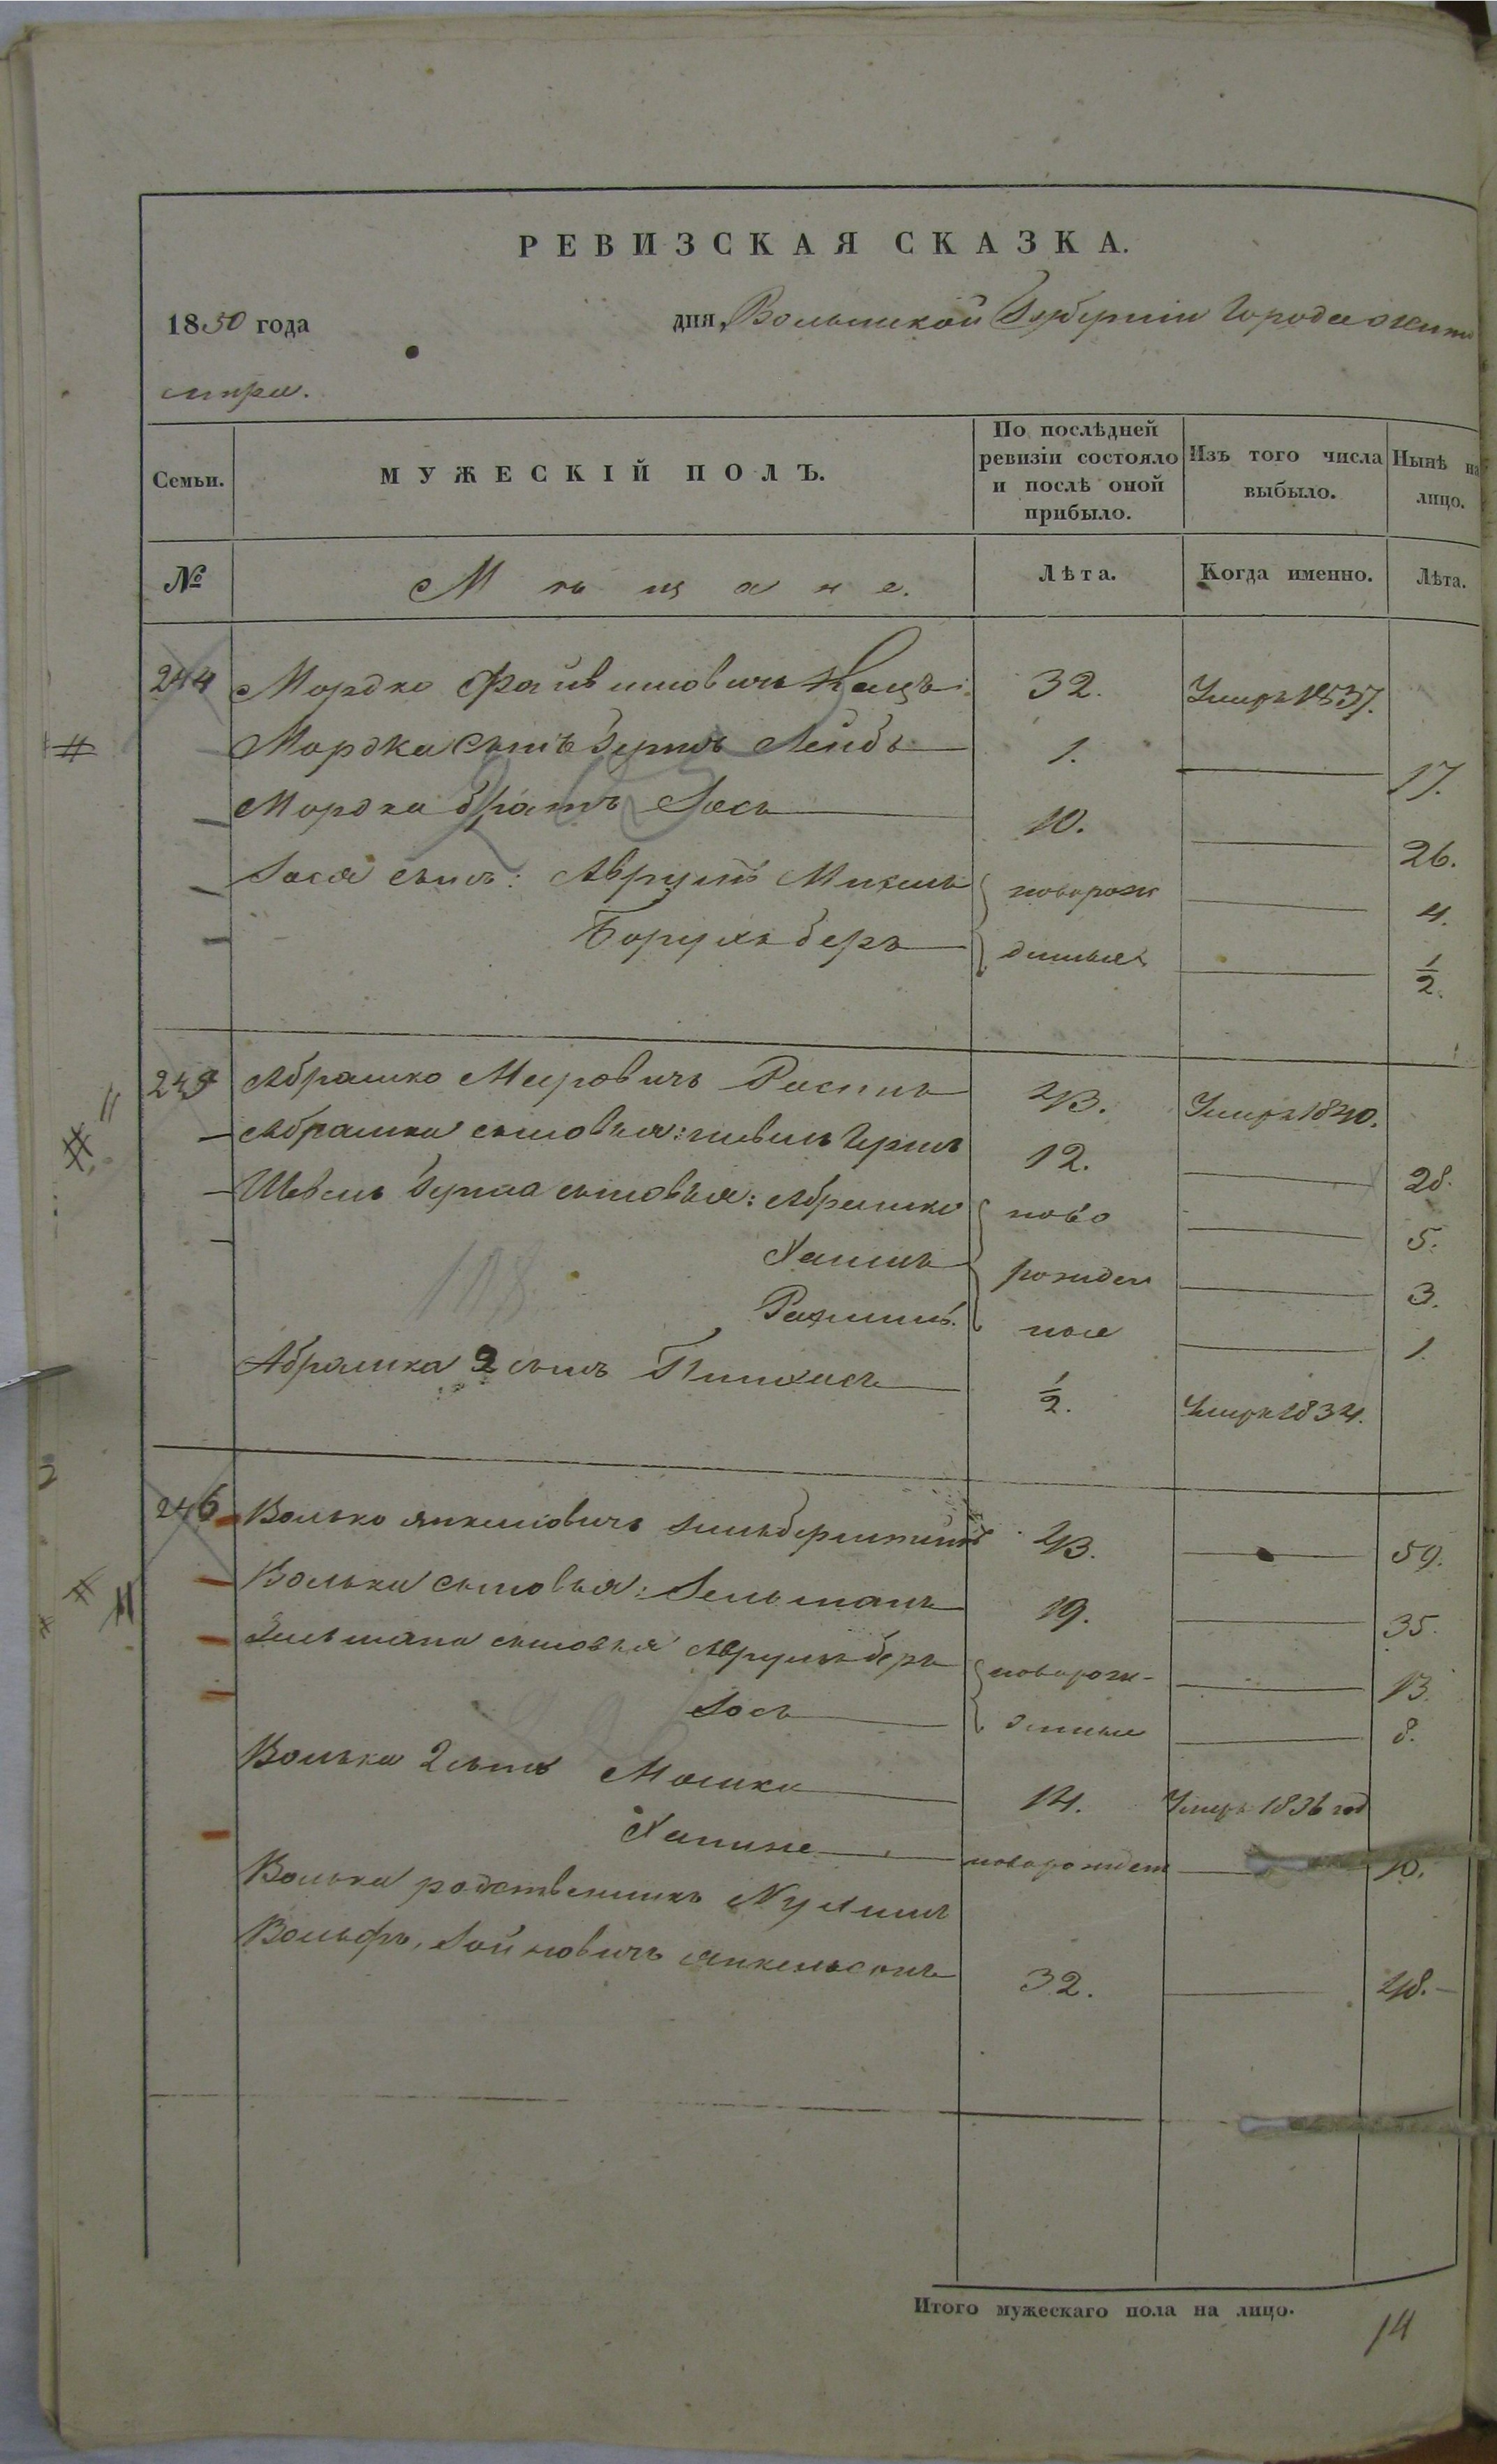 РЕВИЗСКАЯ СКАЗКА.
1850 года дня, Волынской Губерніи Города Жито
мира.
Семьи. МУЖЕСКІЙ ПОЛЪ. По послѣдней ревизіи состояло и послѣ оной прибыло. Изъ того числа выбыло. Нынѣ на лицо.
№ Мѣщане. Лѣта. Когда именно. Лѣта.
244 Мордко Файвишовичъ Кацъ 32. Умеръ 1837.
Мордка сынъ Лейбъ 1. 17.
Мордка братъ Зось 10. 26.
Зося сынъ: Аврумъ Михель новорож 4.
Борухъ Беръ денные 1/2.
245 Абрамко Меровичъ 43. Умеръ 1840.
Абрамка сыновья: Шевель Герш 12. 28.
Шевель сыновья: Абрамко ново 5.
Хаимъ рожден 3.
Рахмиль. ные 1.
Абрамка 2 сынъ Пинхасъ 1/2. Умеръ 1834.
246 Волько Янкелевичъ Зильберштейнъ 43. 59.
Волька сыновья: Зельманъ 19. 35.
Зельмана сыновья Аврумъ Беръ новорож- 13.
Зось денные 8.
Волька 2 сынъ Мошко 14. Умеръ 1836 год
Хаимъ новорожден 10.
Волька родственникъ Нухимъ
Вольфъ, Янкельсонъ 32. 48.
Итого мужескаго пола на лицо. 14